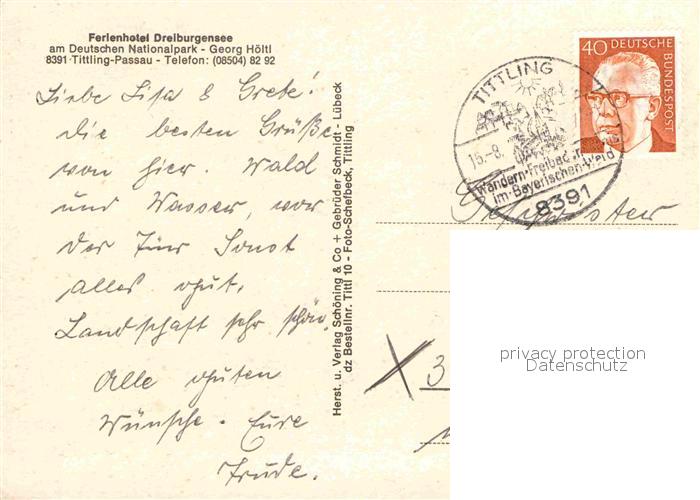 Ferienhotel Dreiburgensee
am Deutschen Nationalpark - Georg Höltl
8391 Tittling-Passau - Telefon: (08504) 82 92
Liebe Lisa & Grete!
die besten Grüße
von hier. Wald
und Wasser, vor
der Tür. Sonst
alles gut.
Landschaft sehr schön.
Alle guten
Wünsche. Eure
Trude.
Herst. u. Verlag Schöning & Co + Gebrüder Schmidt - Lübeck
dz Bestellnr. Tittl 10 - Foto-Schefbeck, Tittling
40 DEUTSCHE
BUNDESPOST
TITTLING
15.-8.
Wandern-Freibad
im-Bayerischen-Wald
8391
Geschwister
X 3
privacy protection
Datenschutz